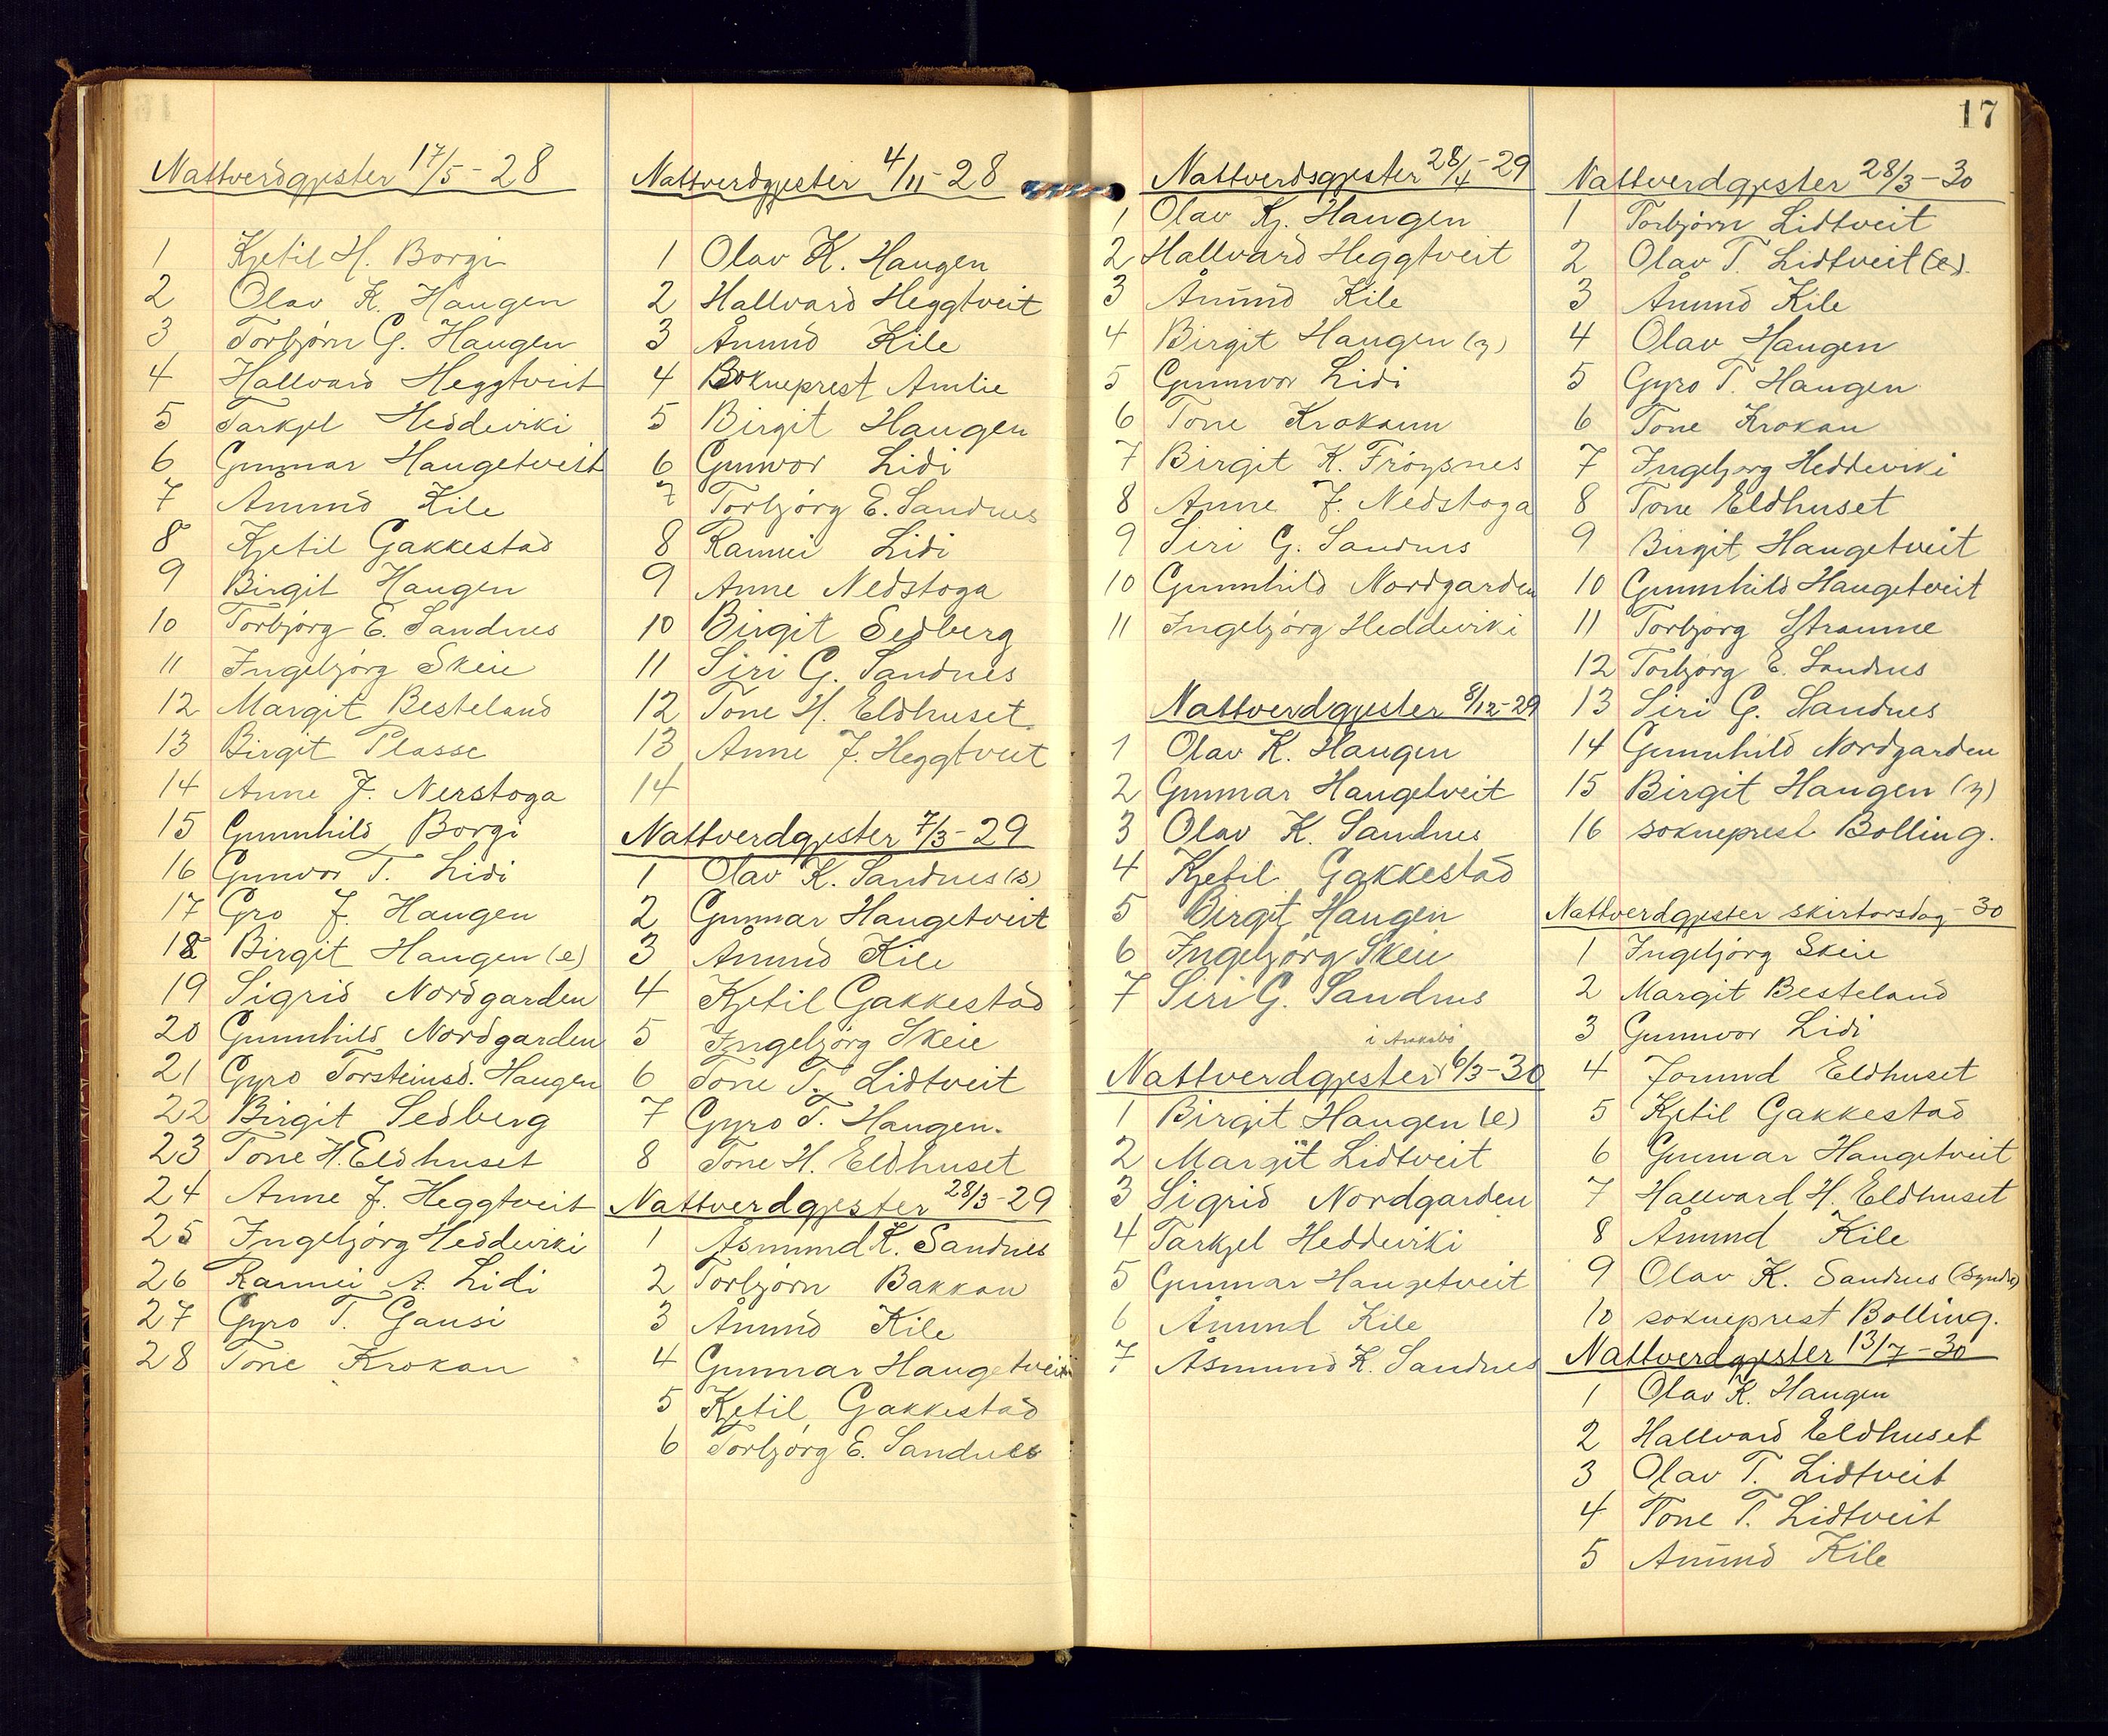 Nattverdgjester 17/5-28
1 Kjetil H. Borgi
2 Olav K. Haugen
3 Torbjørn G. Haugen
4 Hallvard Heggtveit
5 Tarkjel Heddeviki
6 Gunnar Haugetveit
7 Åmund Kile
8 Kjetil Gakkestad
9 Birgit Haugen
10 Torbjørg E. Sandnes
11 Ingebjørg Skeie
12 Margit Besteland
13 Birgit Plasse
14 Anne J. Nerstoga
15 Gunnhild Borgi
16 Gunvor T. Lidi
17 Gro J. Haugen
18 Birgit Haugen (e)
19 Sigrid Nordgarden
20 Gunnhild Nordgarden
21 Gyro Torsteinsd. Haugen
22 Birgit Sedberg
23 Tone H. Eldhuset
24 Anne J. Heggtveit
25 Ingebjørg Heddevirki
26 Rannei A. Lidi
27 Gyro T. Gausi
28 Tone Krokan
Nattverdgjester 4/11-28
1 Olav K. Haugen
2 Hallvard Heggtveit
3 Åmund Kile
4 Sokneprest Amlie
5 Birgit Haugen
6 Gunvor Lidi
7 Torbjørg E. Sandnes
8 Rannei Lidi
9 Anne Nedstoga
10 Birgit Sedberg
11 Siri G. Sandnes
12 Tone H. Eldhuset
13 Anne J. Heggtveit
14
Nattverdgjester 7/3-29
1 Olav K. Sandnes (s)
2 Gunnar Haugetveit
3 Åmund Kile
4 Kjetil Gakkestad
5 Ingebjørg Skeie
6 Tone T. Lidtveit
7 Gyro T. Haugen.
8 Tone H. Eldhuset
Nattverdgjester 28/3-29
1 Åsmund K. Sandnes
2 Torbjørn Bakkan
3 Åmund Kile
4 Gunnar Haugetveit
5 Kjetil Gakkestad
6 Torbjørg E. Sandnes
17
Nattverdsgjester 28/4-29
1 Olav Kj. Haugen
2 Hallvard Heggtveit
3 Åmund Kile
4 Birgit Haugen (y)
5 Gunnvor Lidi
6 Tone Krokann
7 Birgit K. Frøysnes
8 Anne J. Nedstoga
9 Siri G. Sandnes
10 Gunnhild Nordgarden
11 Ingebjørg Heddevirki
Nattverdgjester 8/12-29
1 Olav K. Haugen
2 Gunnar Haugetveit
3 Olav K. Sandnes
4 Kjetil Gakkestad
5 Birgit Haugen
6 Ingebjørg Skeie
7 Siri G. Sandnes
i
Nattverdgjester 6/3-30
1 Birgit Haugen (e)
2 Margit Lidtveit
3 Sigrid Nordgarden
4 Tarkjel Heddevirki
5 Gunnar Haugetveit
6 Åmund Kile
7 Åsmund K. Sandnes
Nattverdgjester 28/3-30
1 Torbjørn Lidtveit
2 Olav T. Lidtveit (e).
3 Åmund Kile
4 Olav Haugen
5 Gyro T. Haugen
6 Tone Krokan
7 Ingebjørg Heddevirki
8 Tone Eldhuset
9 Birgit Haugetveit
10 Gunnhild Haugetveit
11 Torbjørg Straume
12 Torbjørg E. Sandnes
13 Siri G. Sandnes
14 Gunnhild Nordgarden
15 Birgit Haugen (y)
16 sokneprest Bolling.
Nattverdgjester skirtorsdag-30
1 Ingebjørg Skeie
2 Margit Besteland
3 Gunnvor Lidi
4 Jorund Eldhuset
5 Kjetil Gakkestad
6 Gunnar Haugetveit
7 Hallvard H. Eldhuset
8 Åmund Kile
9 Olav K. Sandnes (syndre)
10 sokneprest Bolling.
Nattverdgjester 13/7-30
1 Olav K. Haugen
2 Hallvard Eldhuset
3 Olav T. Lidtveit
4 Tone T. Lidtveit
5 Åmund Kile